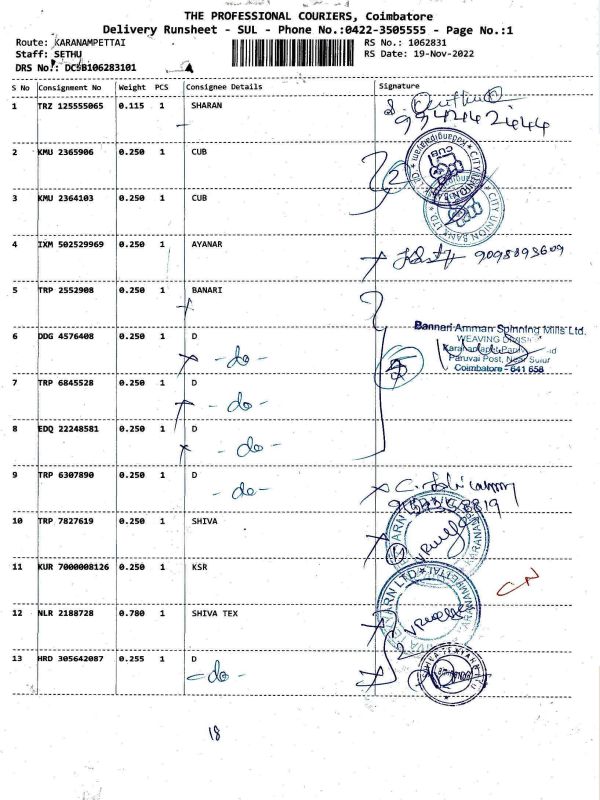 THE PROFESSIONAL COURIERS, Coimbatore
Delivery Runsheet - SUL - Phone No.:0422-3505555 - Page No.:1
Route: KARANAMPETTAI
RS No.: 1062831
Staff: SETHU
RS Date: 19-Nov-2022
DRS No.: DCSB106283101
S No Consignment No Weight PCS Consignee Details Signature
1 TRZ 125555065 0.115 1 SHARAN
2 KMU 2365906 0.250 1 CUB
3 KMU 2364103 0.250 1 CUB
CITY UNION BANK LTD
4 IXM 502529969 0.250 1 AYANAR 9098893609
5 TRP 2552908 0.250 1 BANARI
Bannari Amman Spinning Mills Ltd.
WEAVING
Paruvai Post, Near Sulur
Coimbatore - 641 658
6 DDG 4576408 0.250 1 D
- do -
7 TRP 6845528 0.250 1 D
- do -
8 EDQ 22248581 0.250 1 D
- do -
9 TRP 6307890 0.250 1 D
- do -
10 TRP 7827619 0.250 1 SHIVA
11 KUR 7000008126 0.250 1 KSR
CN
12 NLR 2188728 0.780 1 SHIVA TEX
13 HRD 305642087 0.255 1 D
- do -
18